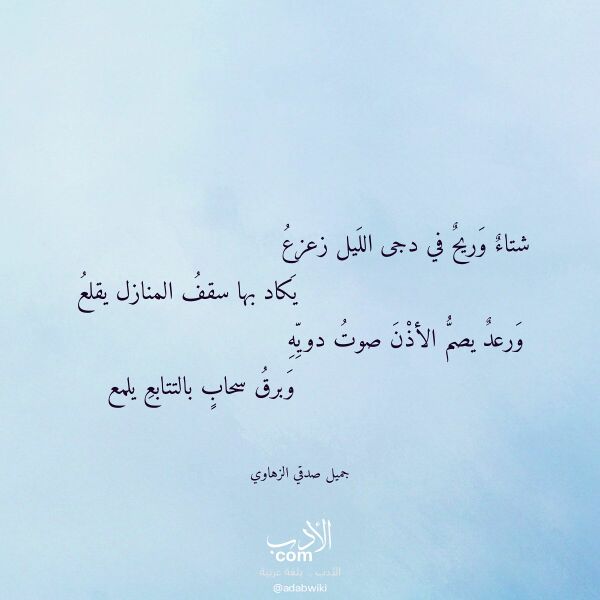 شتاءٌ وَريحٌ في دجى اللَيل زعزعُ
يَكاد بها سقفُ المنازل يقلعُ
وَرعدٌ يصمُّ الأذْنَ صوتُ دويِّهِ
وَبرقُ سحابٍ بالتتابعِ يلمع
جميل صدقي الزهاوي
الأدب
com
الأدب .. بلغة عربية
@adabwiki